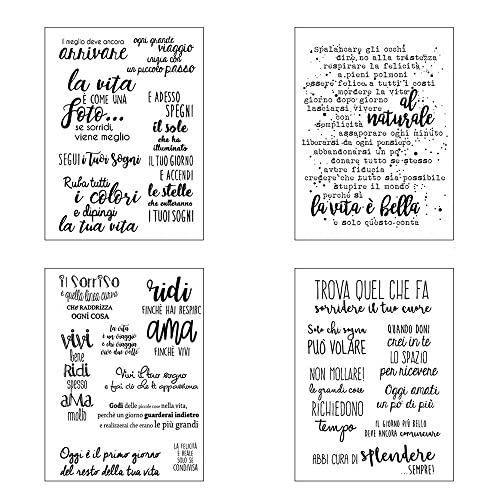 il meglio deve ancora
arrivare
ogni grande
viaggio
inizia con
un piccolo passo
la vita
È COME UNA
foto...
se sorridi,
viene meglio
SEGUI i Tuoi Sogni
Ruba tutti
i colori
e dipingi
la tua vita
E ADESSO
SPEGNI
il sole
che ha
illuminato
IL TUO GIORNO
E ACCENDI
le stelle
che culleranno
I TUOI SOGNI
Spalancare gli occhi
dire no alla tristezza
respirare la felicità
a pieni polmoni
essere felici, a tutti i costi
mordere la vita
giorno dopo giorno
lasciarsi vivere
al
naturale
con
semplicità
assaporare ogni minuto
liberarsi da ogni pensiero,
abbandonarsi un po'
donare tutto se stesso
avere fiducia
credere che tutto sia possibile
stupire il mondo
perché sì
la vita è bella
e solo questo conta
il sorriso
è quella linea curva
CHE RADDRIZZA
OGNI COSA
ridi
FINCHÈ HAI RESPIRO
ama
FINCHÈ VIVI
vivi
bene
Ridi
spesso
aMa
molto
la vita
è un viaggio
e chi viaggia
vive due volte
Vivi il tuo sogno
e fai ciò che ti appassiona
Godi delle piccole cose nella vita,
perchè un giorno guarderai indietro
e realizzerai che erano le più grandi
Oggi è il primo giorno
del resto della tua vita
LA FELICITÀ
È REALE
SOLO SE
CONDIVISA
TROVA QUEL CHE FA
sorridere il tuo cuore
Solo chi sogna
PUÒ VOLARE
NON MOLLARE!
le grandi cose
RICHIEDONO
tempo
QUANDO DONI
crei in te
LO SPAZIO
per ricevere
Oggi amati
un po' di più
IL GIORNO PIÙ BELLO
DEVE ANCORA cominciare
ABBI CURA DI splendere
...SEMPRE!